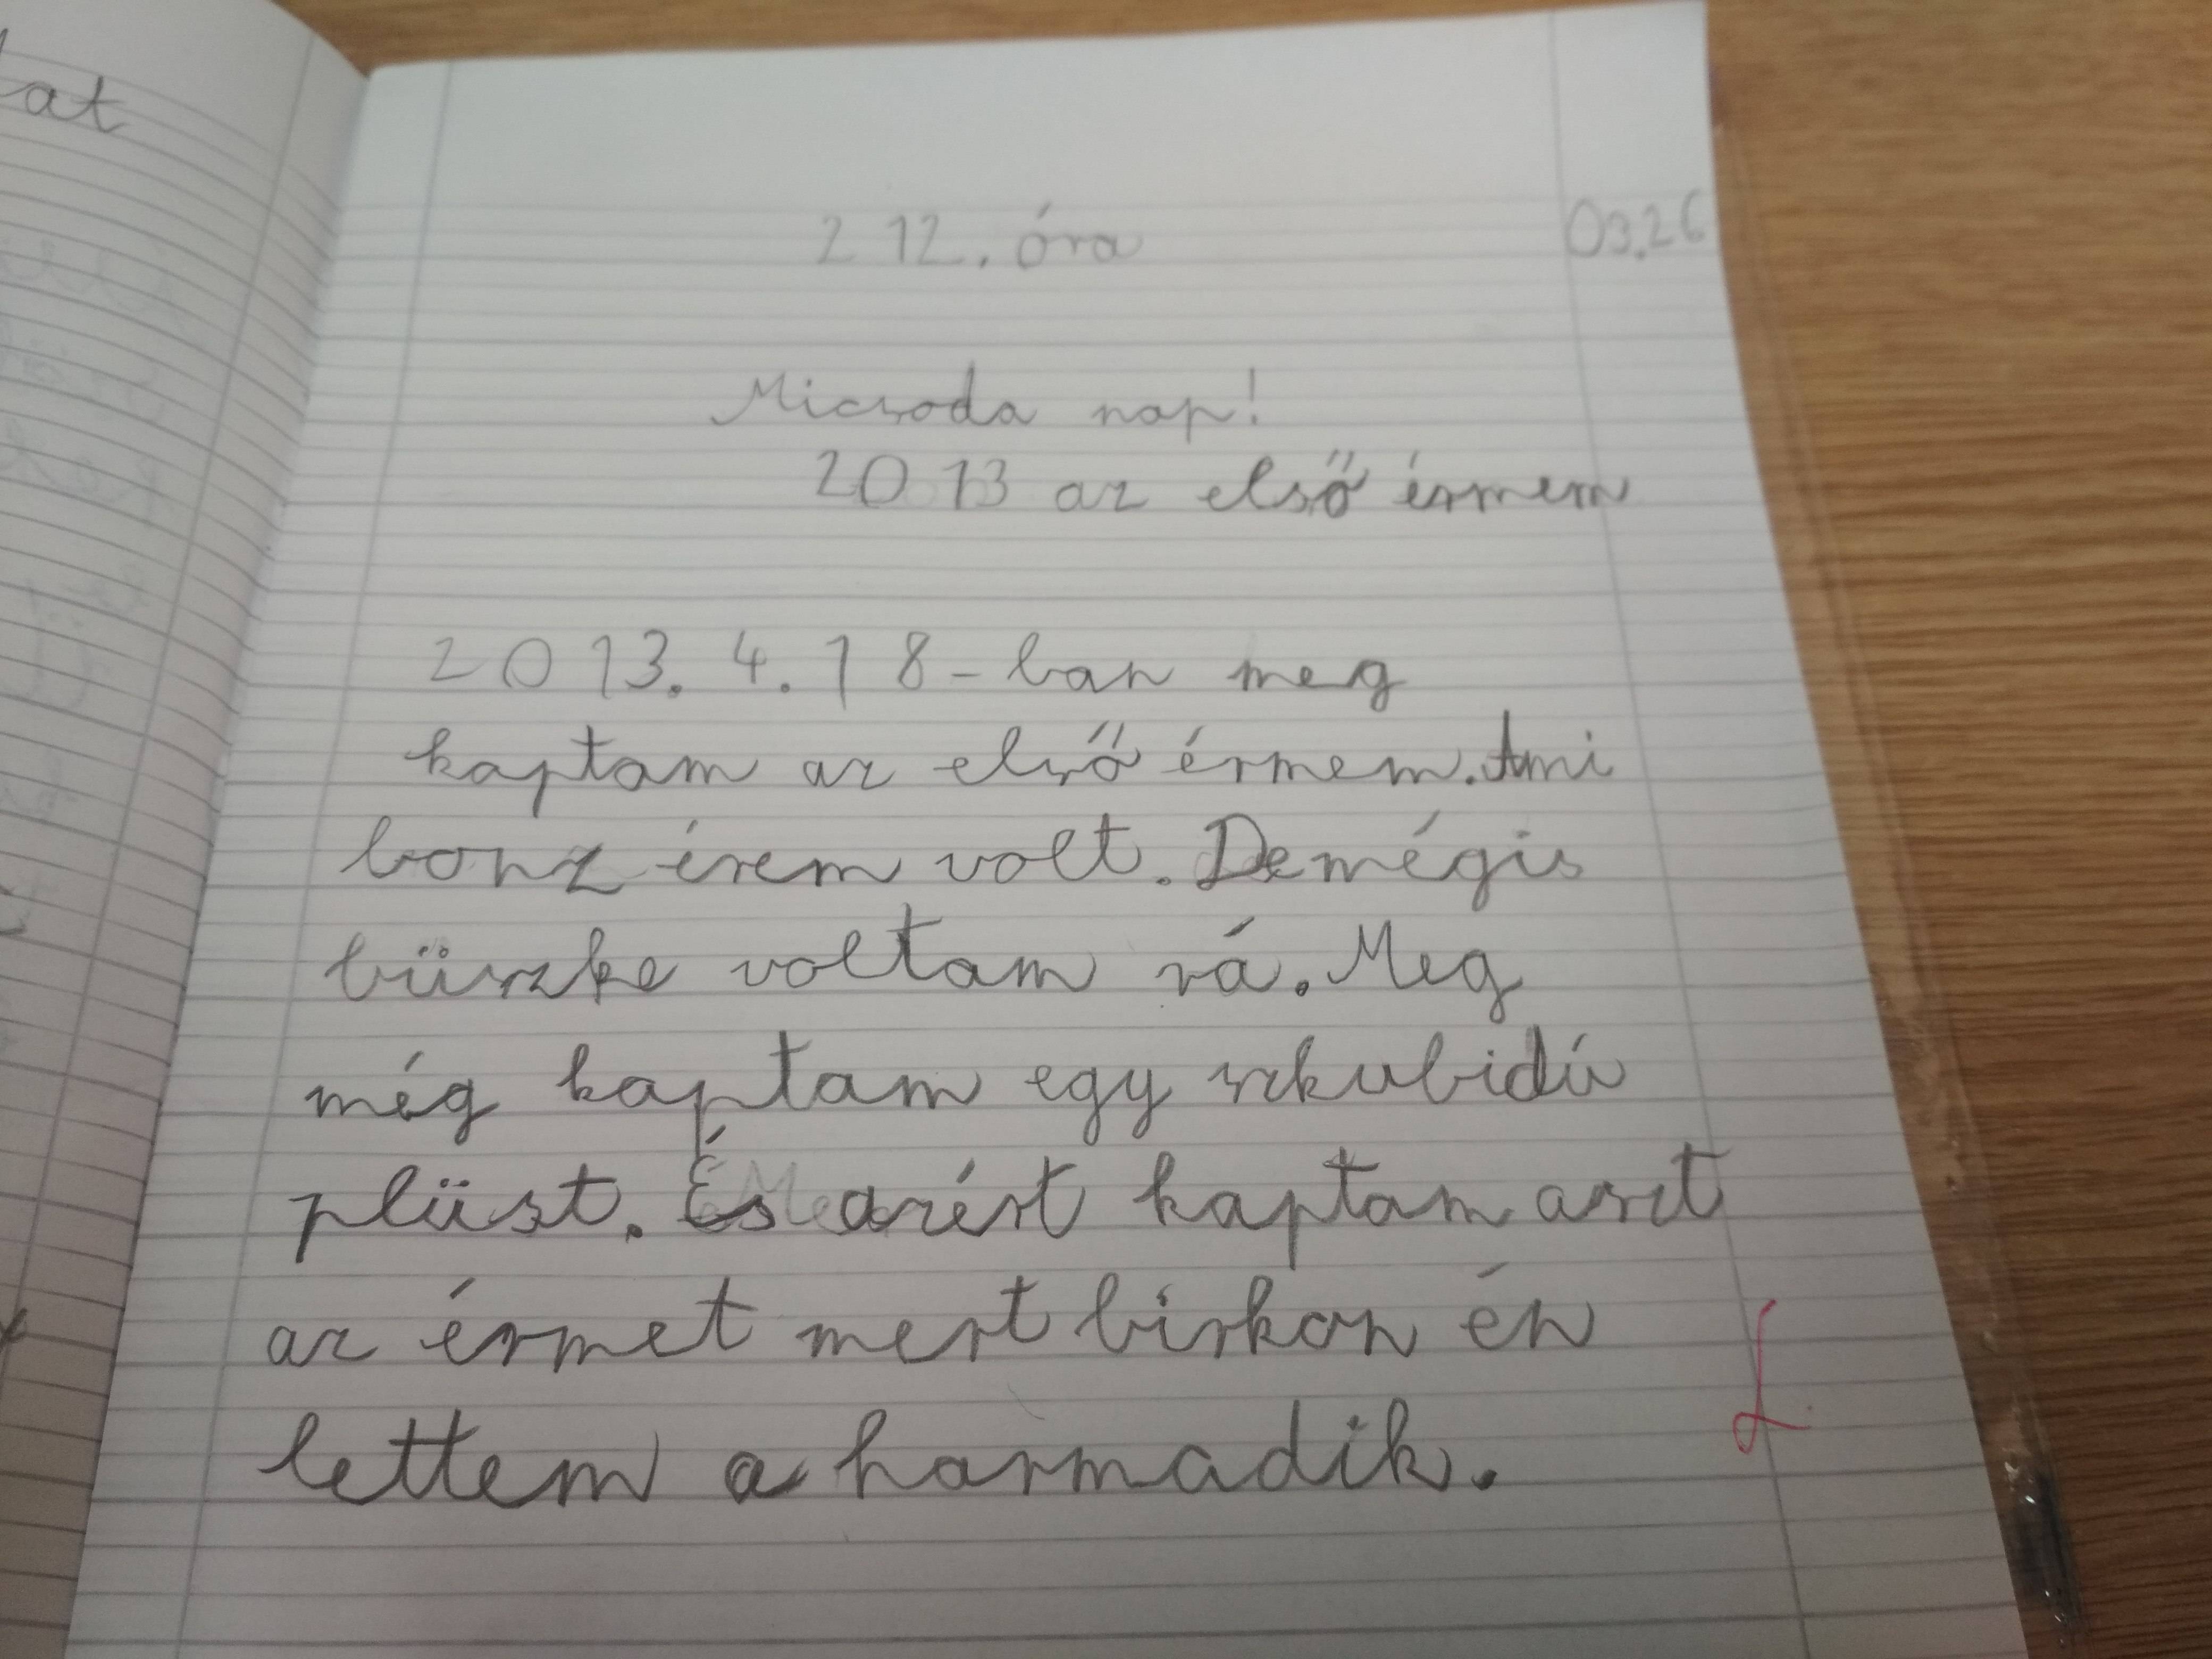 at
212. óra 03.26
Micsoda nap!
2013 az első érmem
2013. 4. 18-ban meg
kaptam az első érmem. Ami
bonz érem volt. De mégis
büszke voltam rá. Meg
még kaptam egy szkubidú
plüst. És azért kaptam aszt
az érmet mert birkon én
lettem a harmadik.